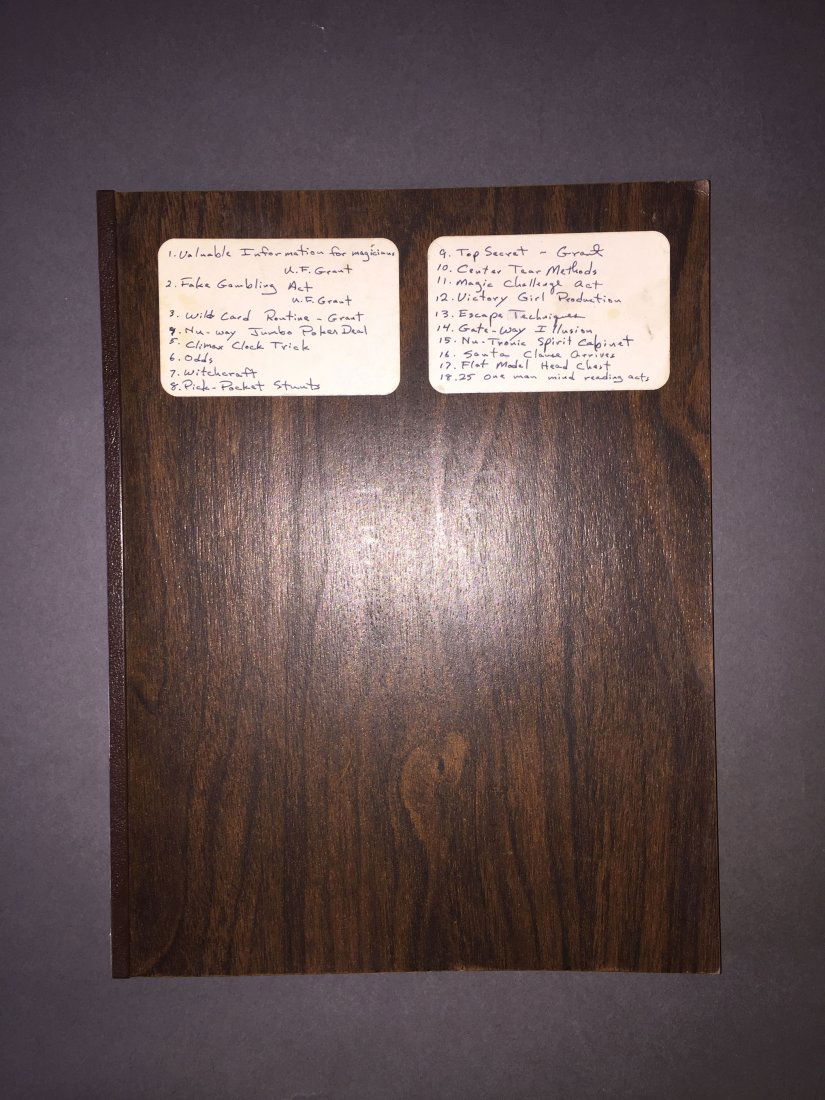 1. Valuable Information for magicians
U.F. Grant
2. Fake Gambling Act
U.F. Grant
3. Wild Card Routine - Grant
4. Nu-way Jumbo Poker Deal
5. Climax Clock Trick
6. Odds
7. Witchcraft
8. Pick-Pocket Stunts
9. Top Secret ~ Grant
10. Center Tear Methods
11. Magic Challenge Act
12. Victory Girl Production
13. Escape Techniques
14. Gate-Way Illusion
15. Nu-Tronic Spirit Cabinet
16. Santa Clause Arrives
17. Flat Model Head Chest
18. 25 One man mind reading acts